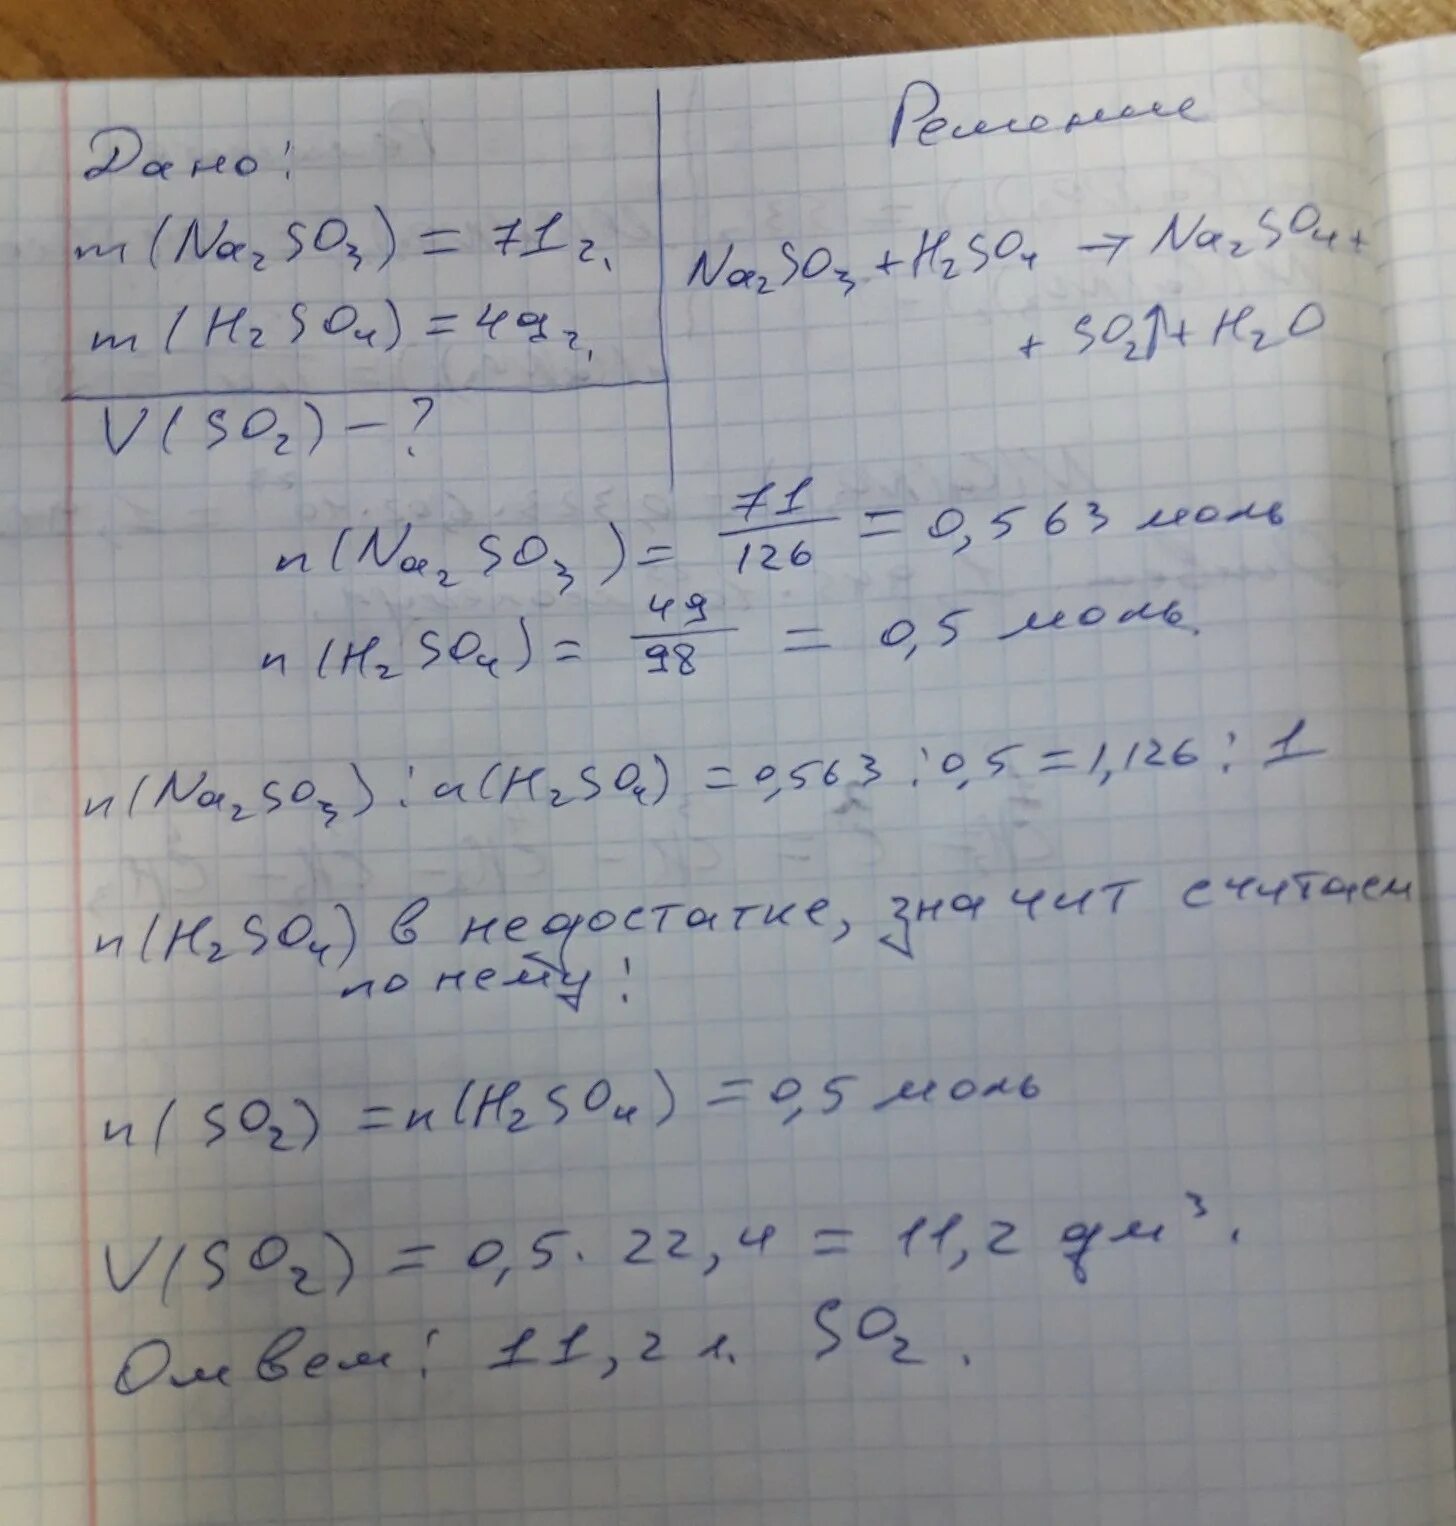 Дано:
m(Na₂SO₃) = 71г.
m(H₂SO₄) = 49г.
V(SO₂) – ?
Решение
Na₂SO₃ + H₂SO₄ → Na₂SO₄ +
+ SO₂↑ + H₂O
n(Na₂SO₃) = 71/126 = 0,563 моль
n(H₂SO₄) = 49/98 = 0,5 моль
n(Na₂SO₃) : n(H₂SO₄) = 0,563 : 0,5 = 1,126 : 1
n(H₂SO₄) в недостатке, значит считаем
по нему:
n(SO₂) = n(H₂SO₄) = 0,5 моль
V(SO₂) = 0,5 · 22,4 = 11,2 дм³.
Ответ: 11,2 л. SO₂.